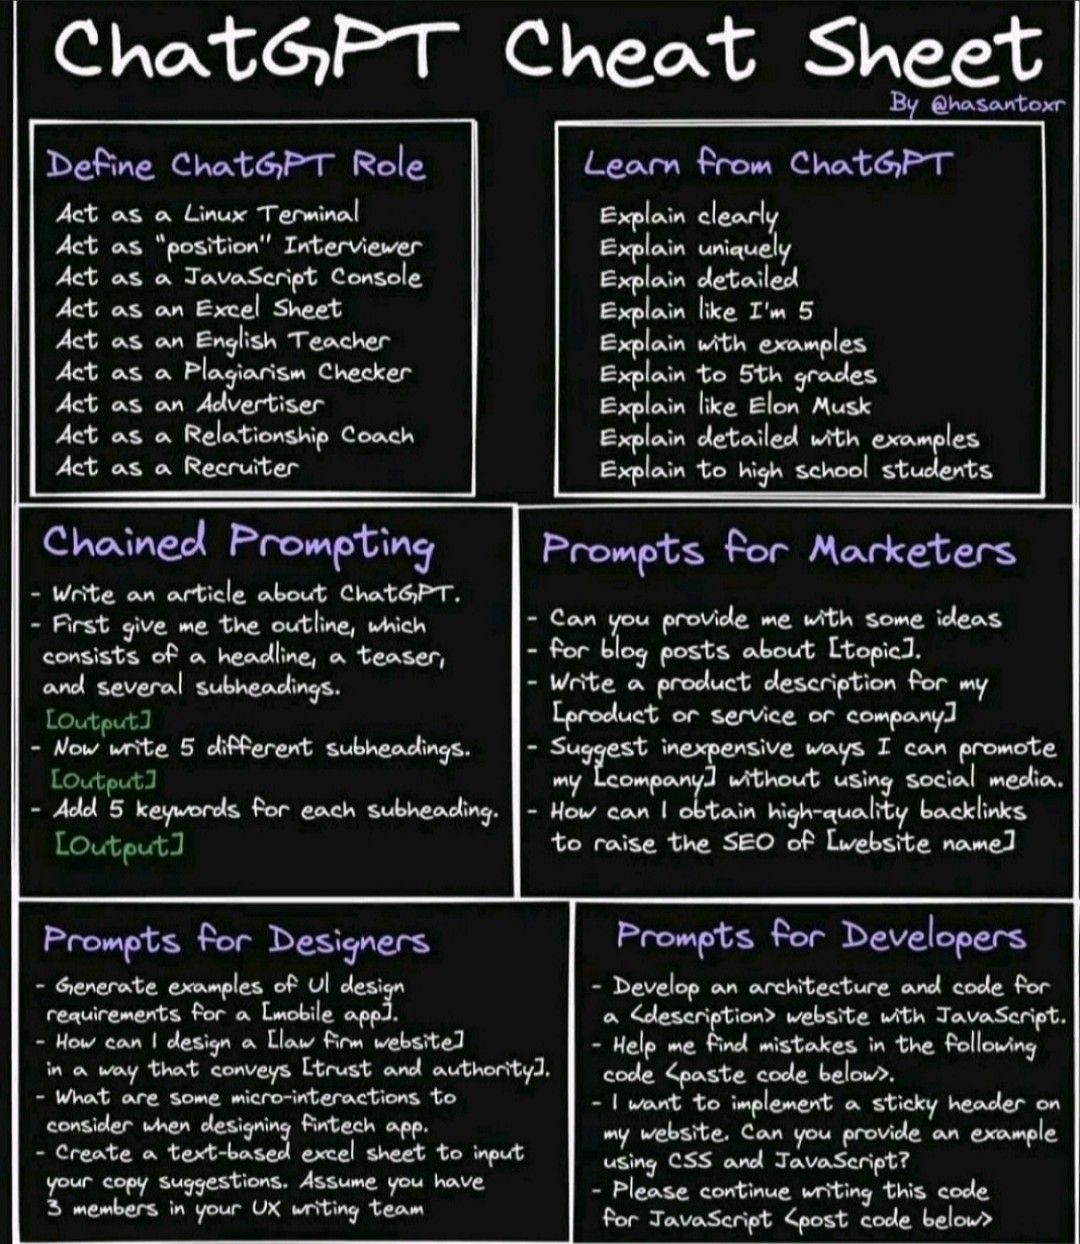 ChatGPT Cheat Sheet
By @hasantoxr
Define ChatGPT Role
Act as a Linux Terminal
Act as "position" Interviewer
Act as a JavaScript Console
Act as an Excel Sheet
Act as an English Teacher
Act as a Plagiarism Checker
Act as an Advertiser
Act as a Relationship Coach
Act as a Recruiter
Learn from ChatGPT
Explain clearly
Explain uniquely
Explain detailed
Explain like I'm 5
Explain with examples
Explain to 5th grades
Explain like Elon Musk
Explain detailed with examples
Explain to high school students
Chained Prompting
- Write an article about ChatGPT.
- First give me the outline, which
consists of a headline, a teaser,
and several subheadings.
[Output]
- Now write 5 different subheadings.
[Output]
- Add 5 keywords for each subheading.
[Output]
Prompts for Marketers
- Can you provide me with some ideas
- for blog posts about [topic].
- Write a product description for my
[product or service or company]
- Suggest inexpensive ways I can promote
my [company] without using social media.
- How can I obtain high-quality backlinks
to raise the SEO of [website name]
Prompts for Designers
- Generate examples of UI design
requirements for a [mobile app].
- How can I design a [law firm website]
in a way that conveys [trust and authority].
- What are some micro-interactions to
consider when designing fintech app.
- Create a text-based excel sheet to input
your copy suggestions. Assume you have
3 members in your UX writing team
Prompts for Developers
- Develop an architecture and code for
a <description> website with JavaScript.
- Help me find mistakes in the following
code <paste code below>.
- I want to implement a sticky header on
my website. Can you provide an example
using CSS and JavaScript?
- Please continue writing this code
for JavaScript <post code below>